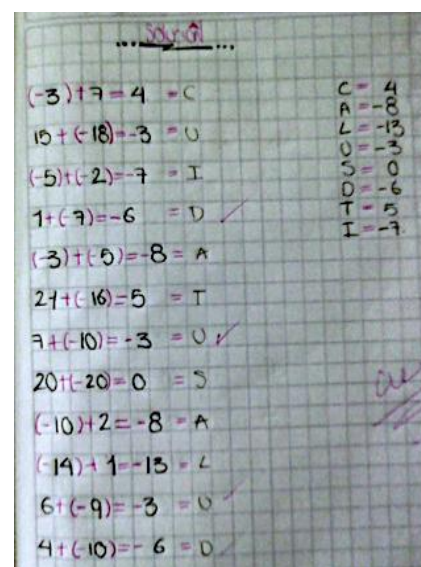 (-3)+7=4 =C
15+(-18)=-3 =U
(-5)+(-2)=-7 =I
1+(-7)=-6 =D
(-3)+(-5)=-8=A
21+(-16)=5 =T
7+(-10)=-3 =U
20+(-20)=0 =S
(-10)+2=-8=A
(-14)+1=-13=L
6+(-9)=-3 =U
4+(-10)=-6 =D
C= 4
A=-8
L=-13
U=-3
S= 0
D=-6
T= 5
I=-7